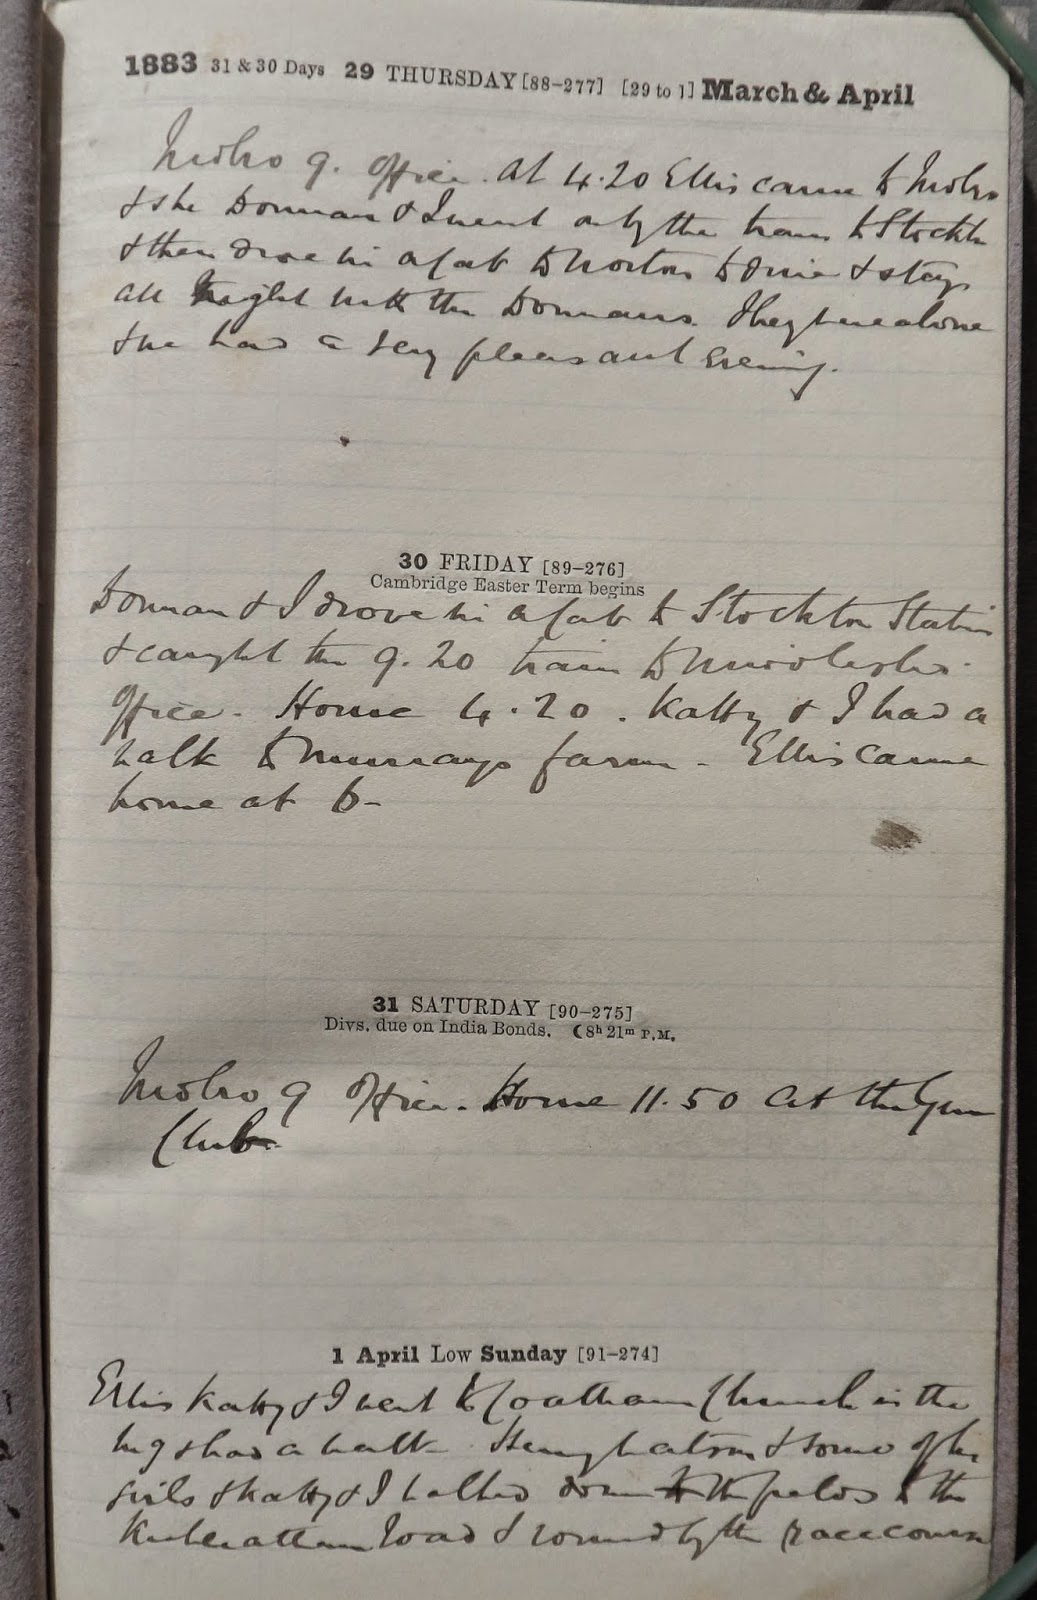 1883 31 & 30 Days 29 THURSDAY [88-277] [29 to 1] March & April
Midbro 9. Office. At 4.20 Ellis came to Midbro
& she Dorman & I went on by the train to Stockton
& then drove in a Cab to Norton to dine & stay
all night with the Dormans. They were alone
& we had a very pleasant Evening.
30 FRIDAY [89-276]
Cambridge Easter Term begins
Dorman & I drove in a Cab to Stockton Station
& caught the 9.20 train to Middlesbro.
Office. Home 4.20. Kathy & I had a
walk to Murrays farm. Ellis came
home at 6-
31 SATURDAY [90-275]
Divs. due on India Bonds. ☾8h 21m P.M.
Midbro 9 Office. Home 11.50 at the Gun
Club.
1 April Low Sunday [91-274]
Ellis Kathy & I went to Coatham Church in the
mg & had a walk. Henry Watson & some of his
girls & Kathy & I walked down the fields to the
Kirkleatham Road & round by the racecourse